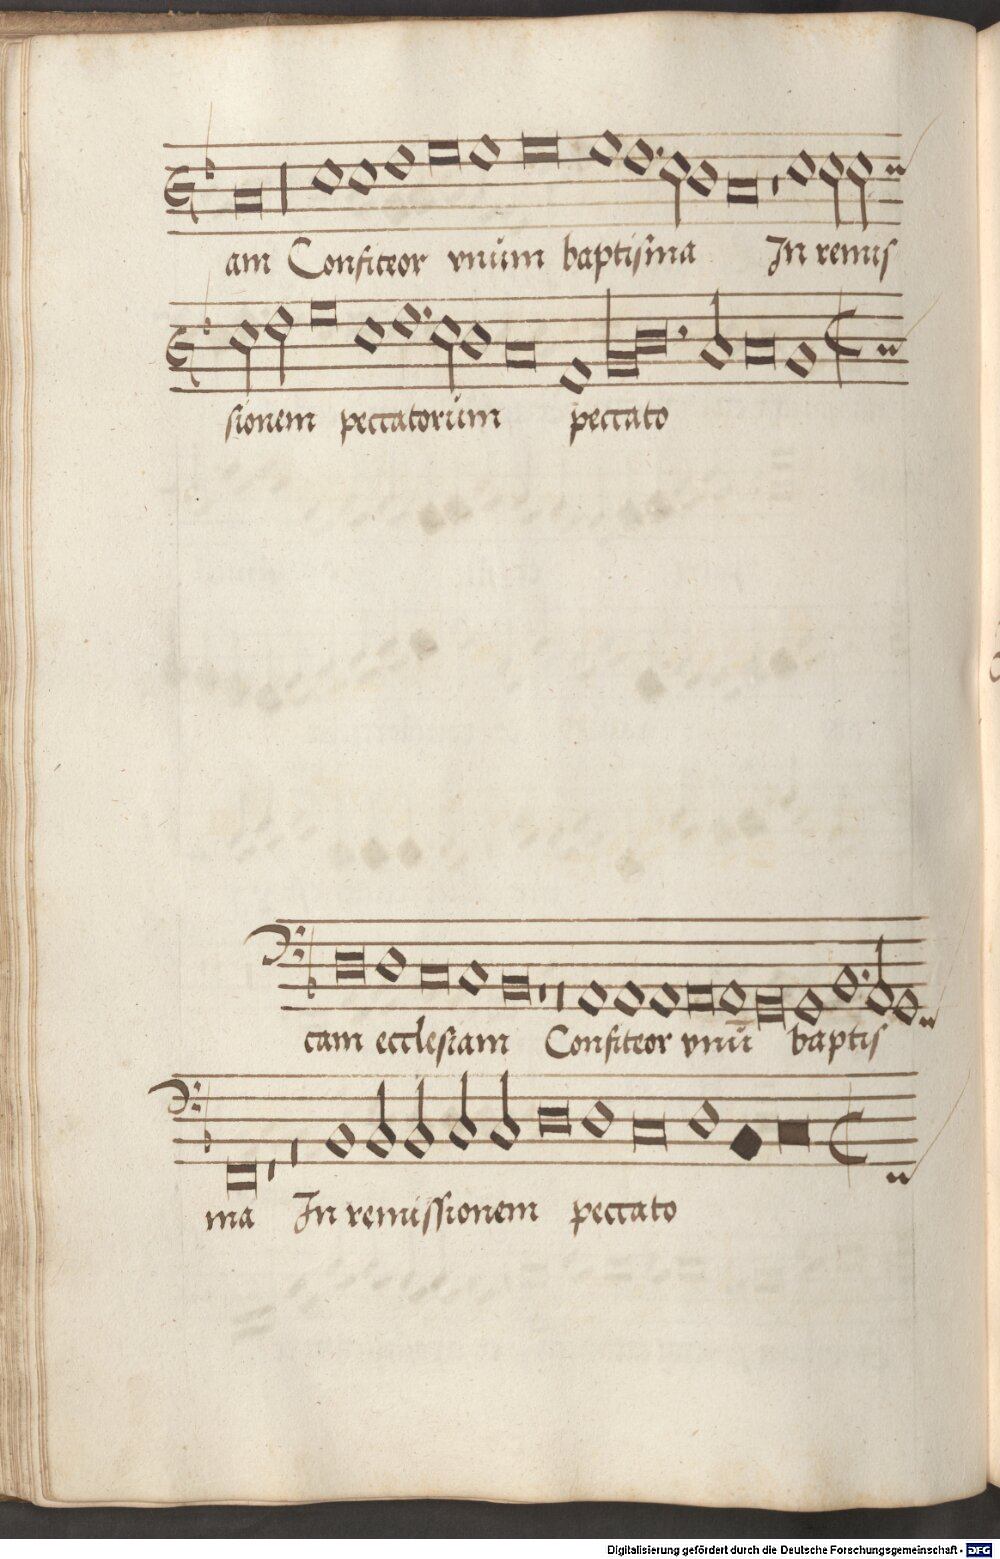 am Confiteor vnum baptisma In remis
sionem peccatorum peccato
cam ecclesiam Confiteor vnū baptis
ma In remissionem peccato
Digitalisierung gefördert durch die Deutsche Forschungsgemeinschaft - DFG